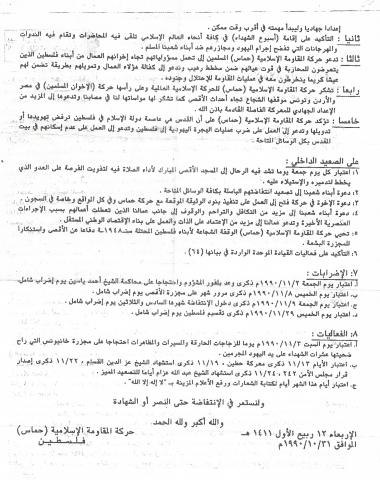 إعدادا جهاديا وليبدأ مهمته في أقرب وقت ممكن .
ثانيا : التأكيد على إقامة (أسبوع الشهداء) في بكافة أنحاء العالم الإسلامي تلقى فيه المحاضرات وتقام فيه الندوات
والمهرجانات التي تفضح إجرام اليهود ومجازرهم ضد أبناء شعبنا المسلم .
ثالثا : تدعو حركة المقاومة الإسلامية (حماس) إلى تحمل مسؤولياتهم تجاه إخوانهم العمال من أبناء فلسطين الذين
يتعرضون للمحاربة في قوت عيالهم ضمن مخطط رهيب وندعو إلى كفالة هؤلاء العمال وتمويلهم بطريقة تضمن لهم
عيشا كريما ينخرطون معه في عمليات المقاومة للإحتلال وجنوده .
رابعا : تشكر حركة المقاومة الإسلامية (حماس) للحركة الإسلامية العالمية وعلى رأسها حركة (الإخوان المسلمين) في مصر
والأردن وتونس موقفها الشجاع تجاه أحداث الأقصى كما نشكر لها مواساتها لنا في مصابنا وتدعوها إلى المزيد من
الإعداد الجهادي للمعركة الفاصلة القادمة باذن الله .
خامسا : تؤكد حركة المقاومة الإسلامية (حماس) على أن القدس هي عاصمة دولة الإسلام في فلسطين ترفض تهويدها أو
تدويلها وتدعو إلى العمل على ضرب عمليات الهجرة اليهودية إلى فلسطين وتدعو إلى العمل على عدم إسكانهم في بيت
المقدس بكل الوسائل المتاحة .
على الصعيد الداخلي :
١: اعتبار كل يوم جمعة يوما تشد فيه الرحال إلى المسجد الأقصى المبارك لأداء الصلاة فيه لتفويت الفرصة على العدو الذي
يخطط لتدميره والإستيلاء عليه .
٢: دعوة أبناء شعبنا إلى تصعيد انتفاضتهم الباسلة بكافة الوسائل المتاحة .
٣: دعوة الإخوة في حركة فتح إلى العمل على تنفيذ بنود الوثيقة الموقعة مع حركة حماس وفي كل المواقع وخاصة في السجون .
٤: دعوة أبناء شعبنا إلى مزيد من التكافل والتراحم والوقوف إلى جانب عمالنا الذين تعطلت أعمالهم بسبب الإجراءات
العنصرية الأخيرة وتدعو عمالنا إلى مزيد من الإعتماد على الذات والعمل على بناء الإقتصاد الوطني المستقل .
٥: تحيي حركة المقاومة الإسلامية (حماس) الوقفة الشجاعة لأبناء فلسطين المحتلة سنة ١٩٤٨م دفاعا عن الأقصى واستنكارا
للمجزرة البشعة .
٦: التأكيد على فعاليات القيادة الموحدة الواردة في بيانها (٦٤) .
٧: الإضرابات :
أ. اعتبار يوم الجمعة ١٩٩٠/١١/٢م ذكرى وعد بلفور المشؤوم واحتجاجا على محاكمة الشيخ أحمد ياسين يوم إضراب شامل.
ب. اعتبار يوم الخميس ١٩٩٠/١١/٨م ذكرى مرور شهر على مجزرة الأقصى يوم إضراب شامل.
ج. اعتبار يوم الجمعة ١٩٩٠/١١/٩م ذكرى دخول الإنتفاضة شهرها السادس والثلاثين يوم إضراب شامل.
د. اعتبار يوم الخميس ١٩٩٠/١١/٢٩م ذكرى تقسيم فلسطين يوم إضراب شامل.
٨: الفعاليات :
أ. اعتبار يوم السبت ١٩٩٠/١١/٣م يوما للزجاجات الحارقة والسيرات والمظاهرات احتجاجا على مجزرة خانيونس التي راح
ضحيتها عشرات الشهداء على يد اليهود المجرمين .
ب. اعتبار الأيام ١١/١٣ ذكرى معركة حطين ، ١١/١٩ ذكرى استشهاد الشيخ عز الدين القسام ، ١١/٢٢ ذكرى إصدار
قرار مجلس الأمن ٢٤٢ ، ١١/٢٤ ذكرى استشهاد الشيخ عبد الله عزام أياما للتصعيد المميز .
ج. اعتبار أيام هذا الشهر أيام لكتابة الشعارات ورفع الأعلام المزينة بـ "لا إله إلا الله" .
ولنستمر في الإنتفاضة حتى النصر أو الشهادة
والله أكبر ولله الحمد
حركة المقاومة الإسلامية (حماس)
فلسطين
الإربعاء ١٢ ربيع الأول ١٤١١ هـ
الموافق ١٩٩٠/١٠/٣١م